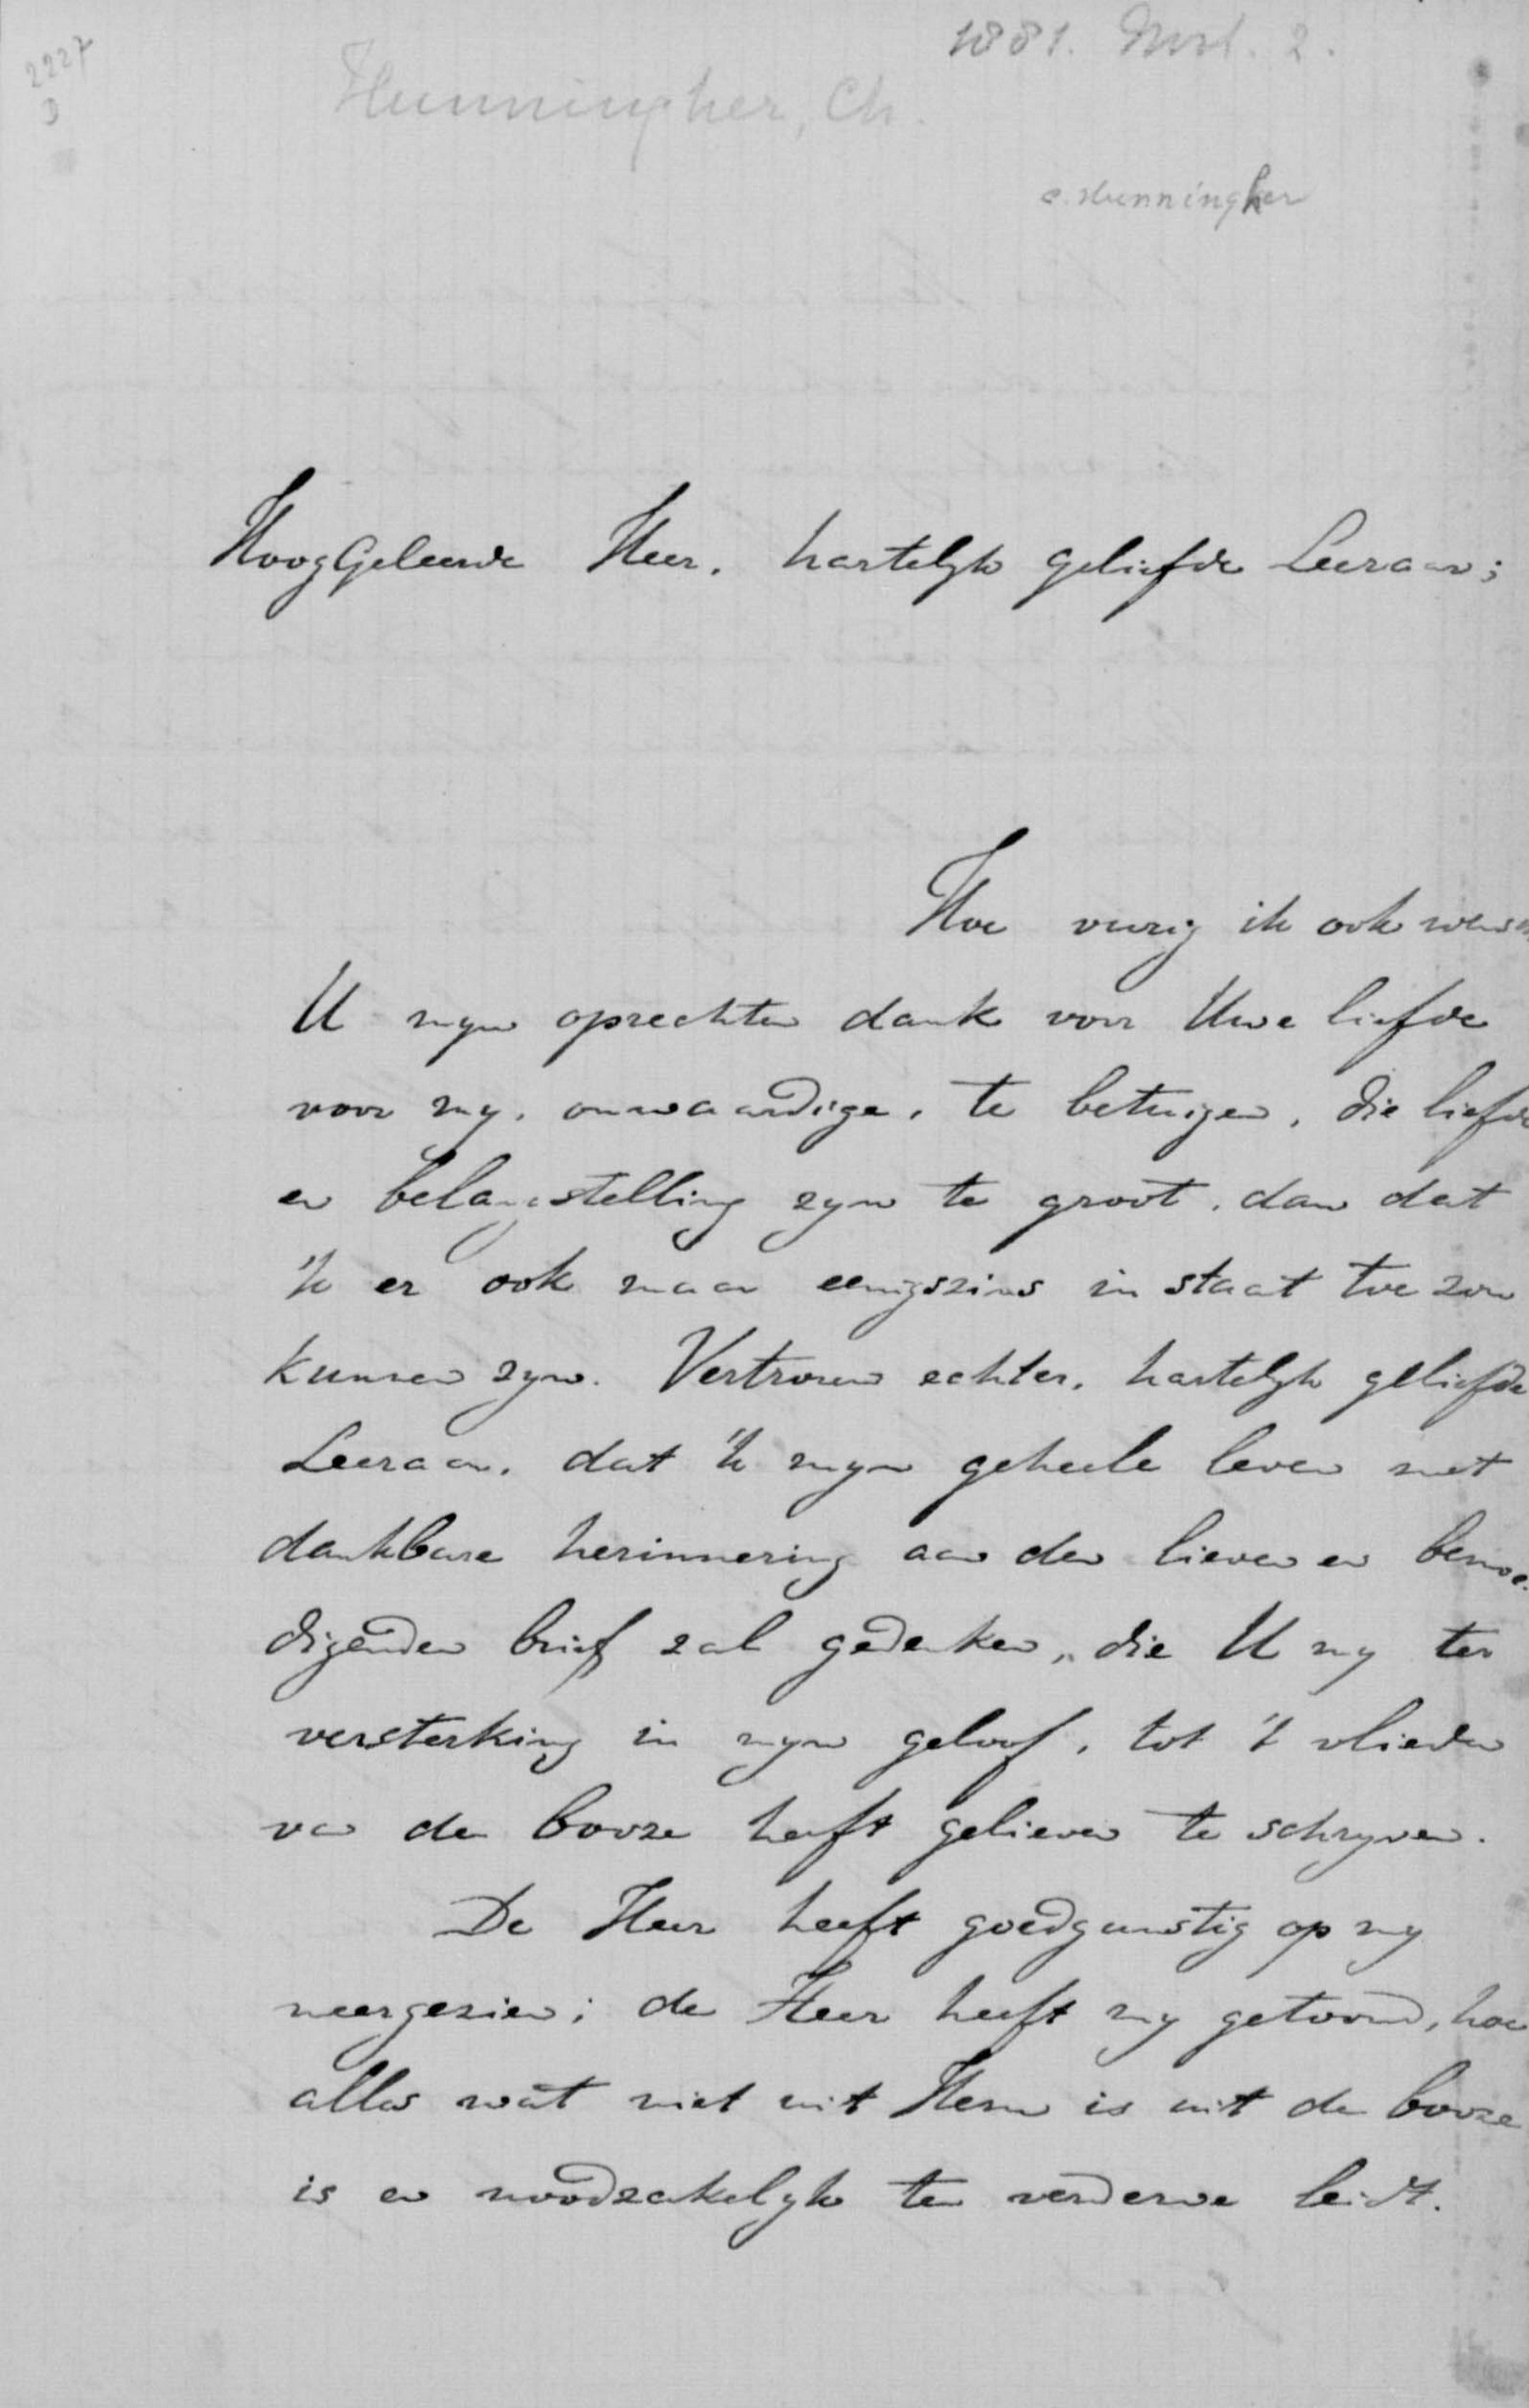 2227
1881. Mrt. 2.
Hunningher, Ch.
C. Hunningher
HoogGeleerde Heer, hartelyk geliefde Leeraar;
Hoe vurig ik ook wensch
U myn oprechten dank voor Uwe liefde
voor my, onwaardige, te betuigen, die liefde
en belangstelling zyn te groot, dan dat
'k er ook maar eenigszins in staat toe zou
kunnen zyn. Vertrouw echter, hartelyk geliefde
Leeraar, dat 'k myn geheele leven met
dankbare herinnering aan den lieven en bemoe-
digenden brief zal gedenken, die U my ter
versterking in myn geloof, tot 't vlieden
van den booze heeft gelieven te schryven.
De Heer heeft goedgunstig op my
neergezien; de Heer heeft my getoond, hoe
alles wat niet uit Hem is uit den booze
is en noodzakelyk ten verderve leidt.